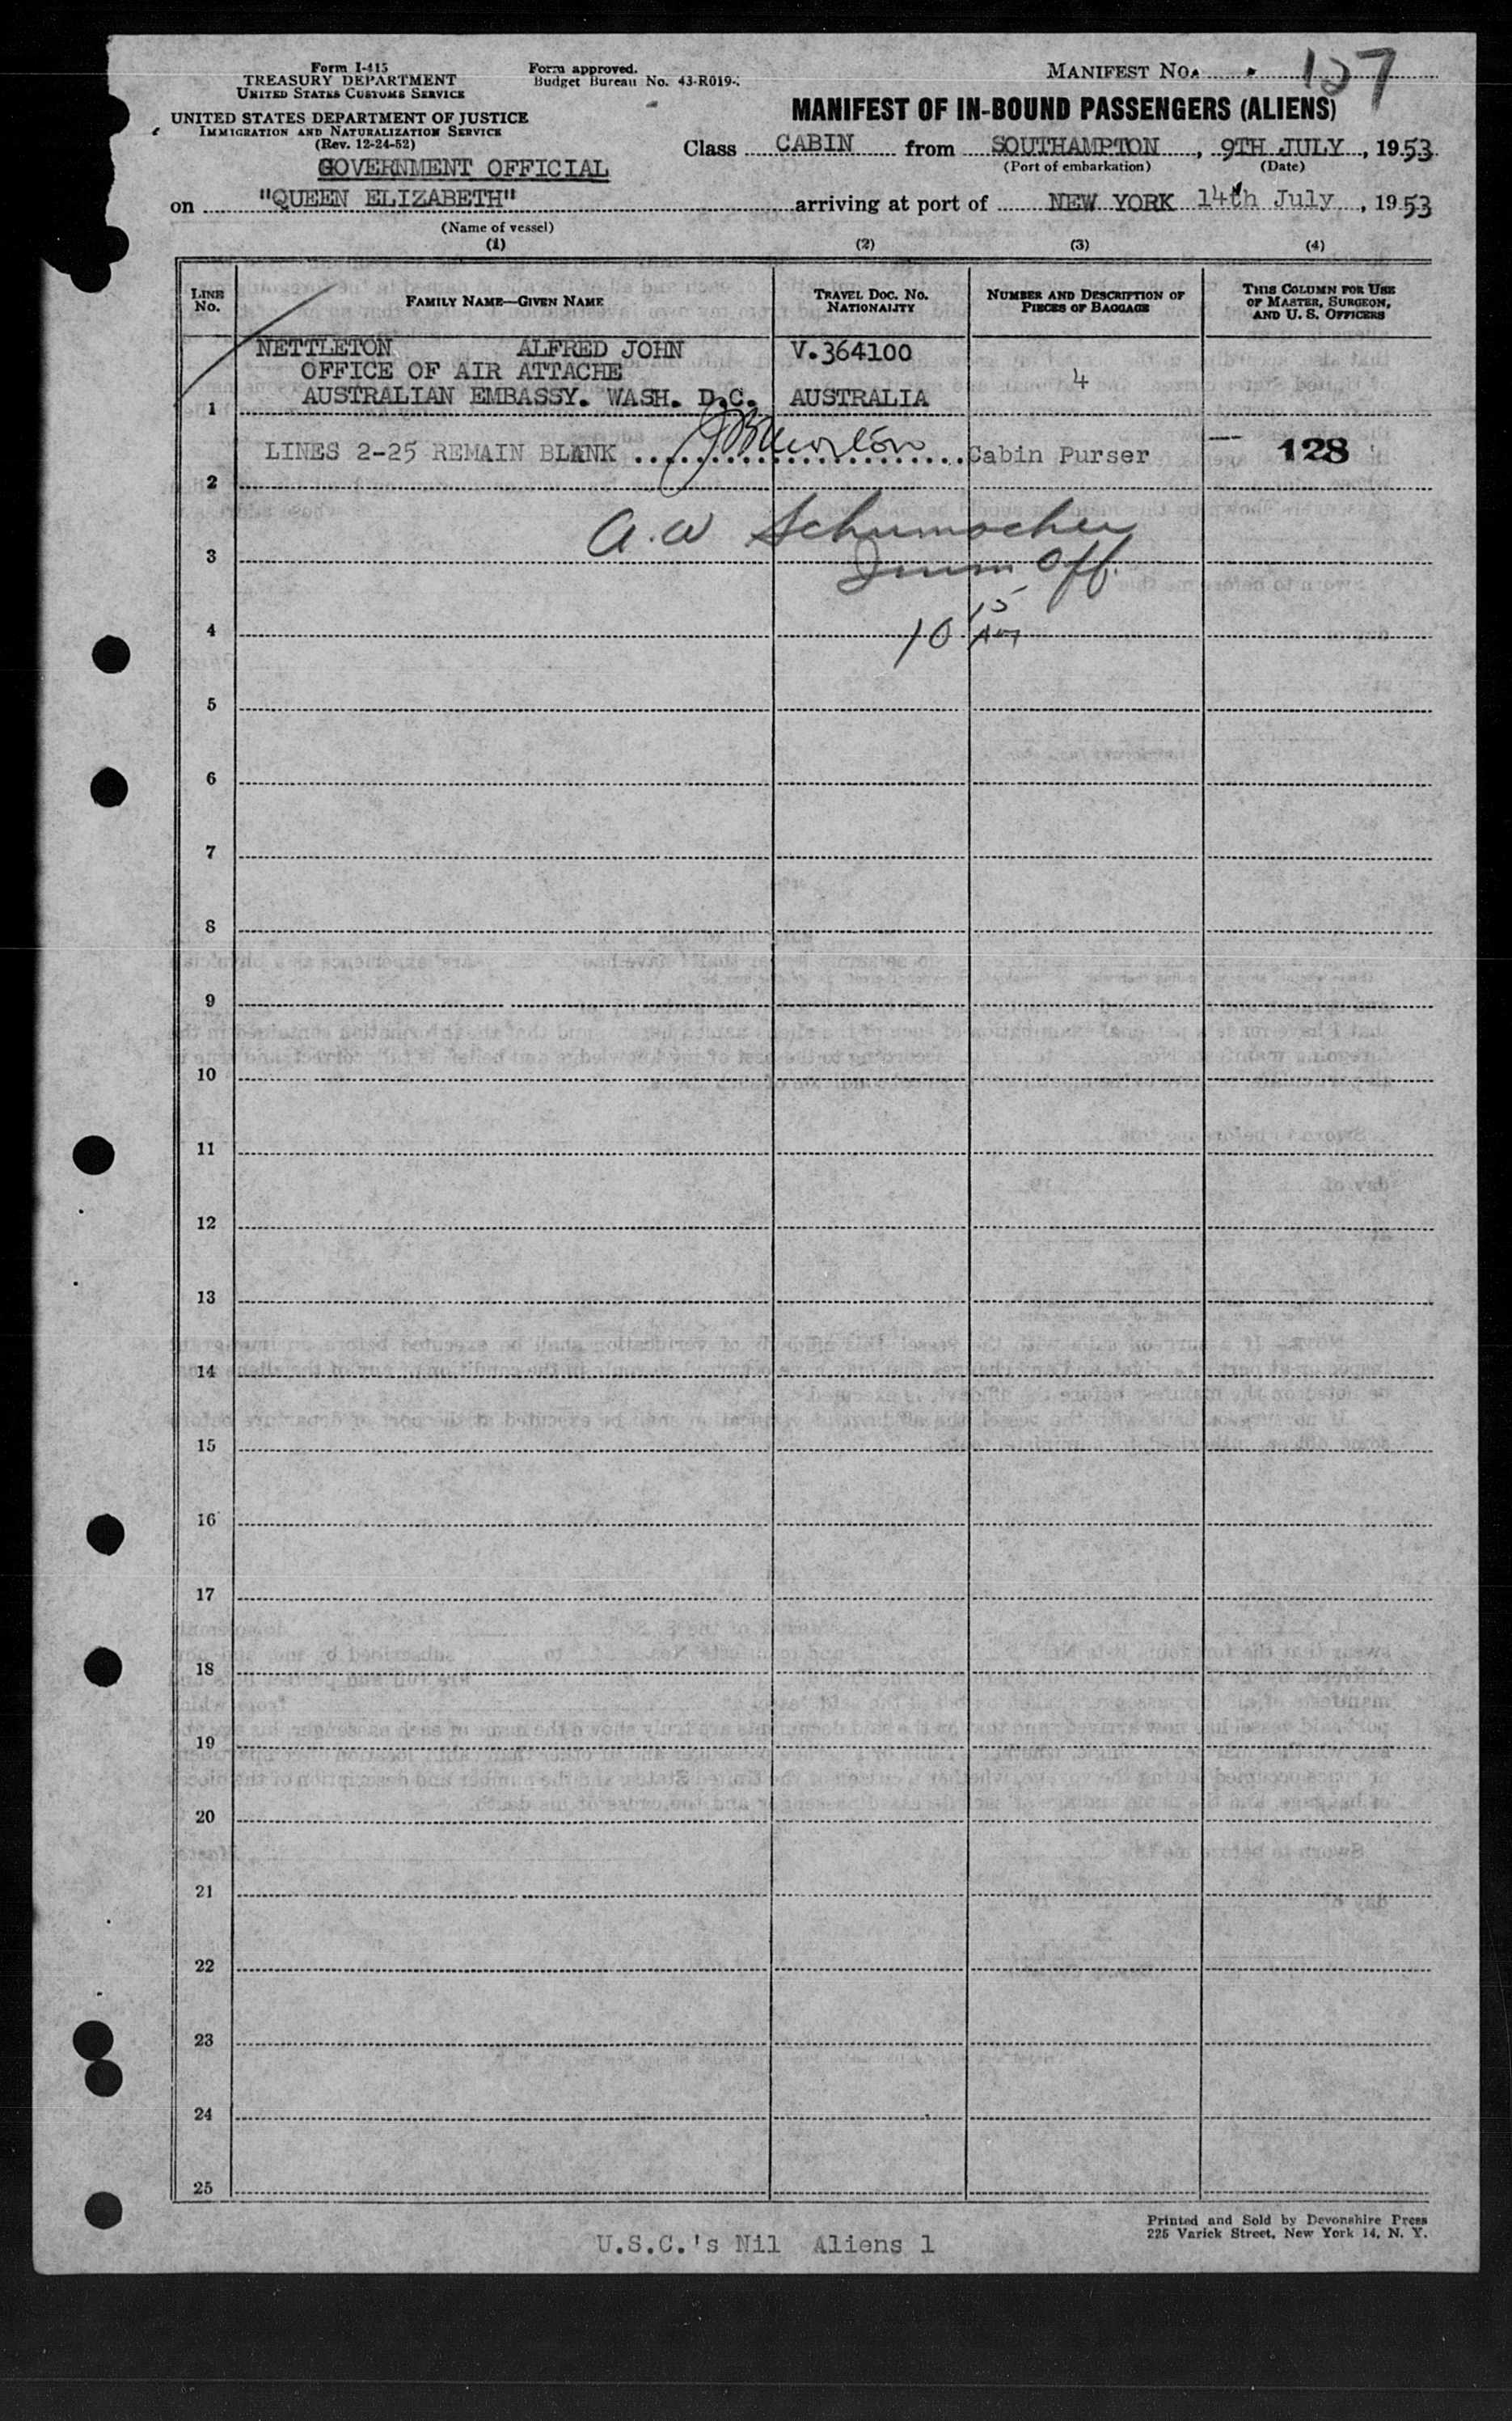 Form I-415
TREASURY DEPARTMENT
UNITED STATES CUSTOMS SERVICE
UNITED STATES DEPARTMENT OF JUSTICE
IMMIGRATION AND NATURALIZATION SERVICE
(Rev. 12-24-52)
Form approved.
Budget Bureau No. 43-R019-
MANIFEST NO. 127
MANIFEST OF IN-BOUND PASSENGERS (ALIENS)
GOVERNMENT OFFICIAL
Class CABIN from SOUTHAMPTON, 9TH JULY, 1953
(Port of embarkation) (Date)
on "QUEEN ELIZABETH" arriving at port of NEW YORK 14th July, 1953
(Name of vessel)
(1) (2) (3) (4)
LINE NO.
FAMILY NAME—GIVEN NAME
TRAVEL DOC. NO. NATIONALITY
NUMBER AND DESCRIPTION OF PIECES OF BAGGAGE
THIS COLUMN FOR USE OF MASTER, SURGEON, AND U. S. OFFICERS
NETTLETON ALFRED JOHN V.364100
OFFICE OF AIR ATTACHE 4
1 AUSTRALIAN EMBASSY. WASH. D.C. AUSTRALIA
LINES 2-25 REMAIN BLANK Cabin Purser 128
2
A. W Schumacher
3 Imm Off.
4 10 15 AM
5
6
7
8
9
10
11
12
13
14
15
16
17
18
19
20
21
22
23
24
25
Printed and Sold by Devonshire Press
225 Varick Street, New York 14, N. Y.
U.S.C.'s Nil Aliens 1